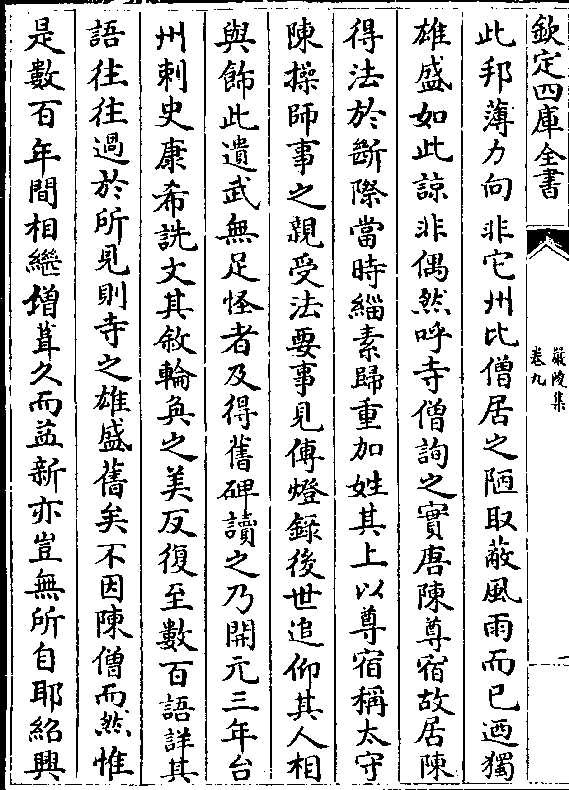 欽定四庫全書
嚴陵集
卷九
此邦薄力向非它州比僧居之陋取蔽風雨而已迺獨
雄盛如此諒非偶然呼寺僧詢之實唐陳尊宿故居陳
得法於斷際當時緇素歸重加姓其上以尊宿稱太守
陳操師事之親受法要事見傳燈錄後世追仰其人相
與飾此遺武無足怪者及得舊碑讀之乃開元三年台
州刺史康希詵文其敘輪奐之美反復至數百語詳其
語往往過於所見則寺之雄盛舊矣不因陳僧而然惟
是數百年間相繼增葺久而益新亦豈無所自耶紹興